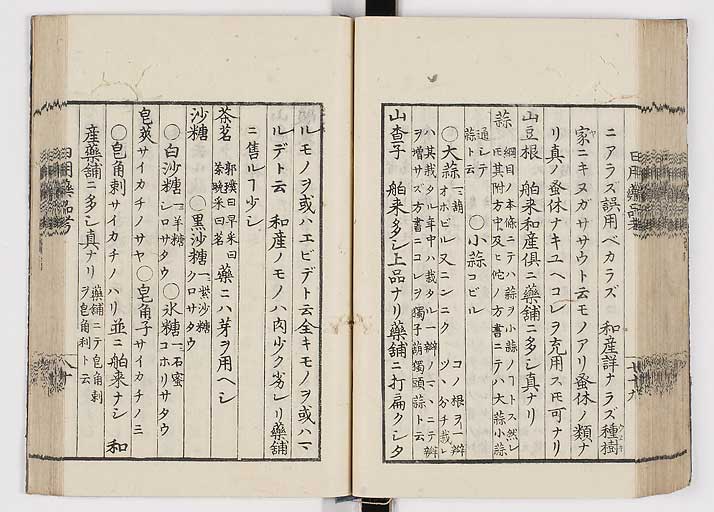 ニアラズ誤用ベカラズ　和産詳ナラズ種樹
家ニキヌガササウト云モノアリ蚤休ノ類ナ
リ真ノ蚤休ナキユヘコレヲ充用スモ可ナリ
山豆根　舶来和産俱ニ藥舗ニ多シ真ナリ
蒜　綱目ノ本條ニテハ蒜ヲ小蒜ノヿトス然レ
𪜈其附方中及ヒ佗ノ方書ニテハ大蒜小蒜
通シテ
蒜ト云　○小蒜コビル
○大蒜　一葫　オホビル又ニンニク　コノ根ヲ一瓣
ツヽ分チ栽レ
ハ其栽タル年中ハ栽タル一瓣ノマヽニテ瓣
ヲ増サズ方書ニコレヲ獨子葫獨頭蒜ト云
山査子　舶来多シ上品ナリ藥舗ニ打扁クシタ
ルモノヲ或ハエビデト云全キモノヲ或ハマ
ルデト云　和産ノモノハ肉少ク劣レリ藥舗
ニ售ルヿ少シ
茶茗　郭璞曰早采曰
茶晩采曰茗　藥ニハ芽ヲ用ヘシ
沙糖　○黒沙糖　一紫沙糖
クロサタウ
○白沙糖　一洋糖
シロサタウ　○氷糖　一石蜜
コホリサタウ
皂莢サイカチノサヤ　○皂角子サイカチノミ
○皂角刺サイカチノハリ並ニ舶来ナシ　和
産藥舗ニ多シ真ナリ　藥舗ニテ皂角刺
ヲ皂角利ト云